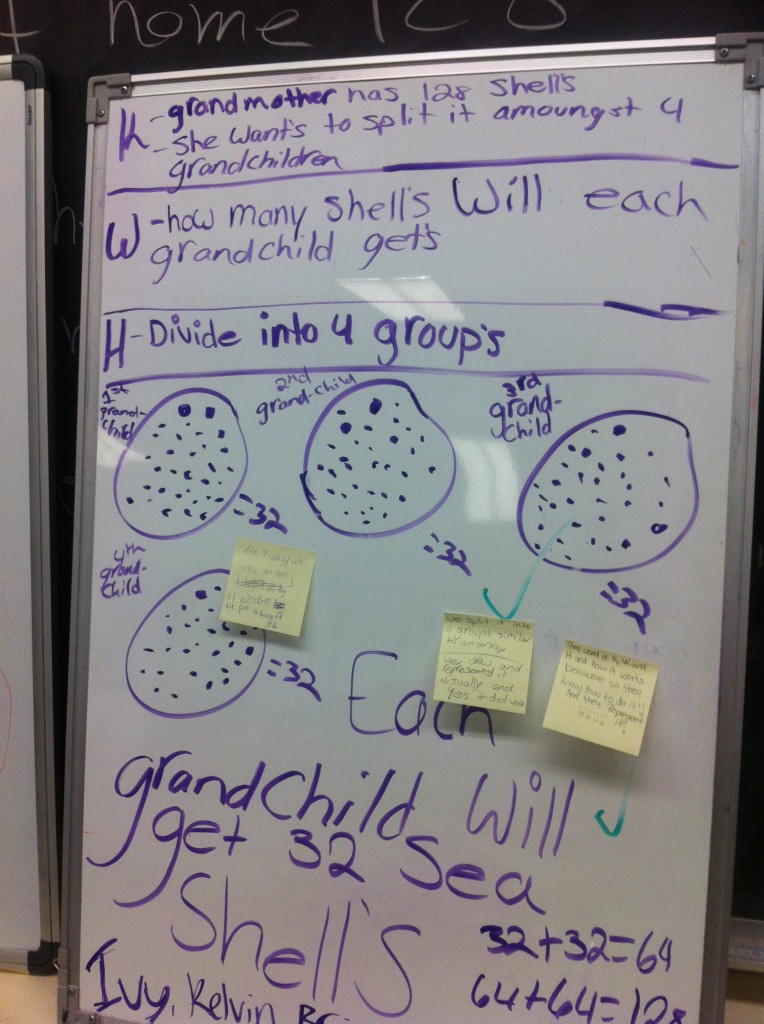 home
K -grandmother has 128 shell's
-She want's to split it amoungst 4
grandchildren
W -how many shell's Will each
grandchild get's
H-Divide into 4 group's
1st
grand-
child
=32
2nd
grand-child
=32
3rd
grand-
child
=32
4th
grand-
child
=32
we split it into
a groups similar
to an array
we drew and
represented it
visually and
yes it did
They used a
H and how it works
because so they
know how to do it!!
And they represent
it!
Each
grandchild Will
get 32 Sea
Shell's
32+32=64
64+64=128
Ivy, Kelvin